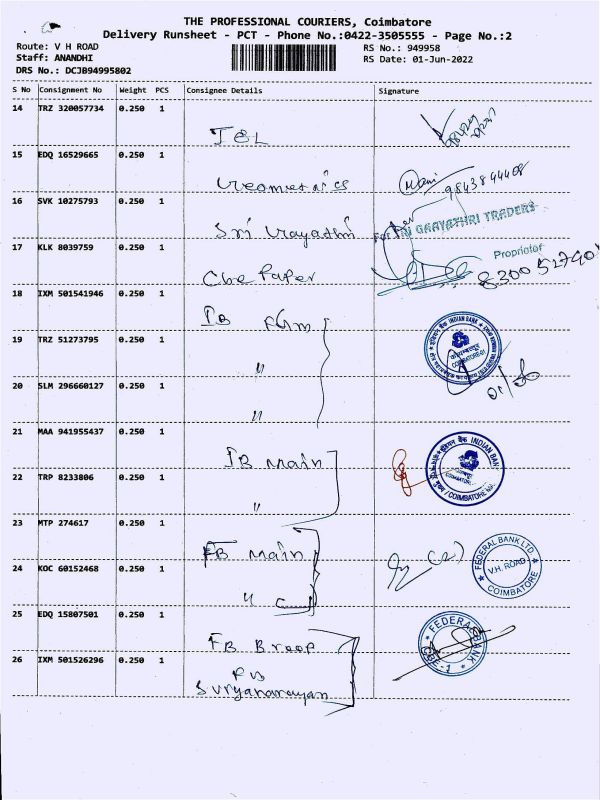 THE PROFESSIONAL COURIERS, Coimbatore
Delivery Runsheet - PCT - Phone No.:0422-3505555 - Page No.:2
Route: V H ROAD
RS No.: 949958
Staff: ANANDHI
RS Date: 01-Jun-2022
DRS No.: DCJB94995802
S No Consignment No Weight PCS Consignee Details Signature
14 TRZ 320057734 0.250 1
15 EDQ 16529665 0.250 1
Mani 9843894408
16 SVK 10275793 0.250 1
Sri Gayathri
For SRI GAAYATHRI TRADERS
17 KLK 8039759 0.250 1
Proprietor
Cbe Paper
18 IXM 501541946 0.250 1
IB
19 TRZ 51273795 0.250 1
INDIAN BANK
COIMBATORE-01
"
20 SLM 296660127 0.250 1
01/06
"
21 MAA 941955437 0.250 1
IB Main
INDIAN BANK
COIMBATORE
22 TRP 8233806 0.250 1
"
23 MTP 274617 0.250 1
FB Main
(2)
FEDERAL BANK LTD
V.H. ROAD
COIMBATORE
24 KOC 60152468 0.250 1
"
25 EDQ 15807501 0.250 1
FB
FEDERAL BANK
CBE-1
26 IXM 501526296 0.250 1
Suryanarayan